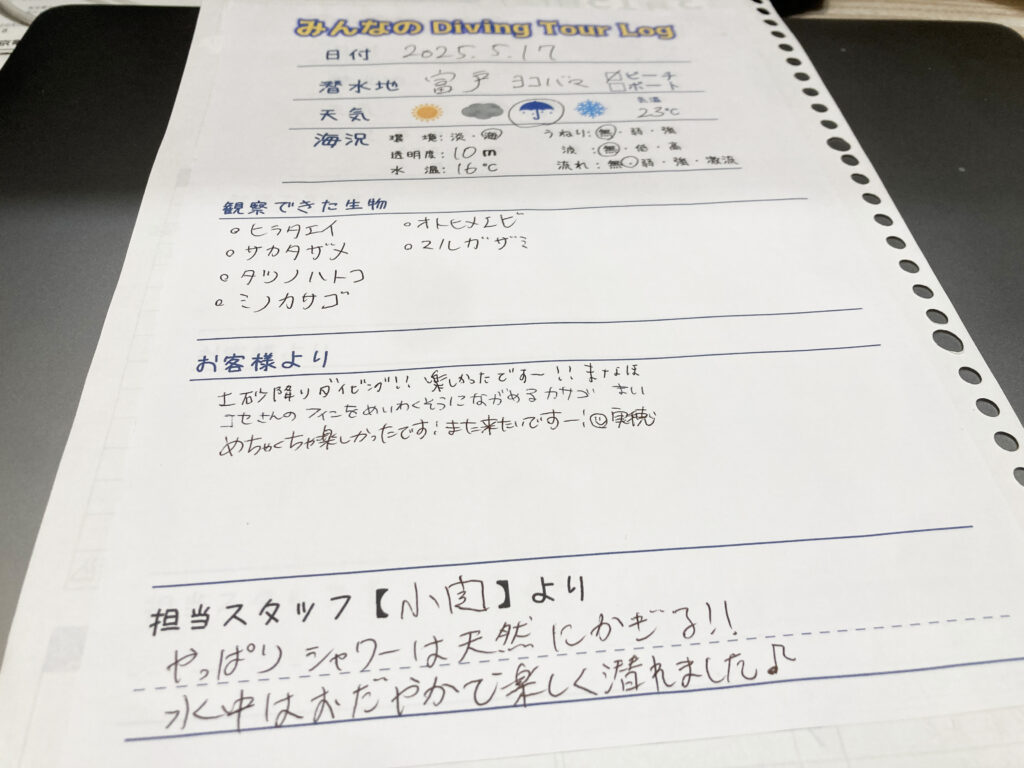 みんなの Diving Tour Log
日付 2025.5.17
潜水地 富戸 ヨコバマ ☑ビーチ □ボート
天気 気温 23℃
海況 環境:淡・海 うねり:無・弱・強
透明度:10m 波:無・低・高
水温:16℃ 流れ:無・弱・強・激流
観察できた生物
○ヒラタエイ ○オトヒメエビ
○サカタザメ ○マルガザミ
○タツノハトコ
○ミノカサゴ
お客様より
土砂降りダイビング!! 楽しかったです〜!! まなほ
さんのフィンをめいわくそうにながめるカサゴ まい
めちゃくちゃ楽しかったです!また来たいですー!☺実穂
担当スタッフ【小関】より
やっぱりシャワーは天然にかぎる!!
水中はおだやかで楽しく潜れました♪